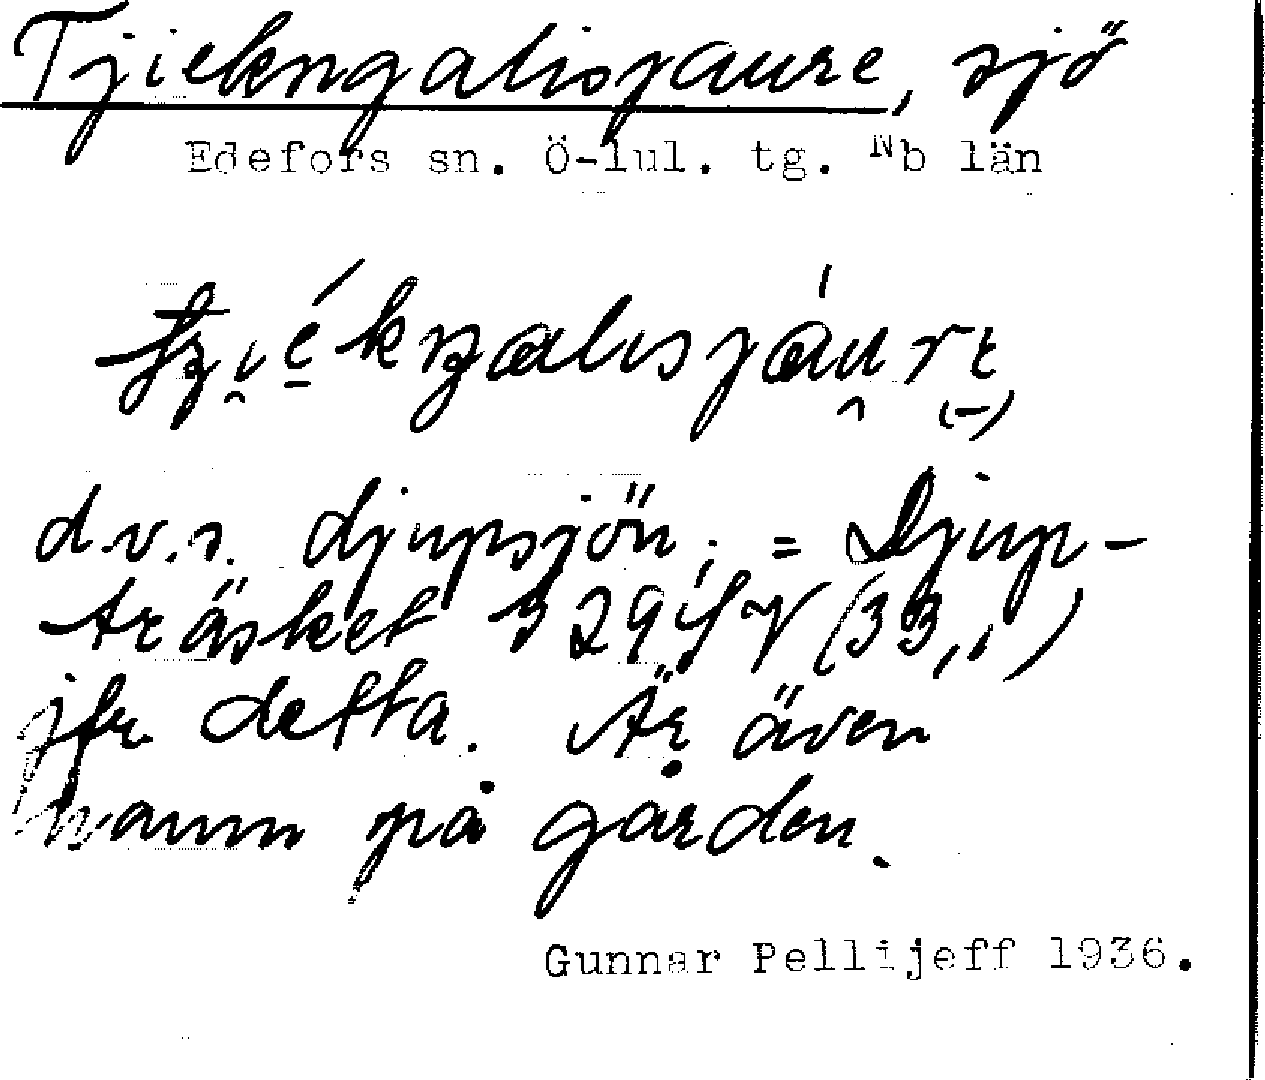 Tjiekngalisjaure, sjö
Edefors sn. Ö-lul. tg. Nb län
d.v.s. djupsjön; = Djup-
träsket 329 (33,1)
jfr detta. Är även
namn på gården.
Gunnar Pellijeff 1936.